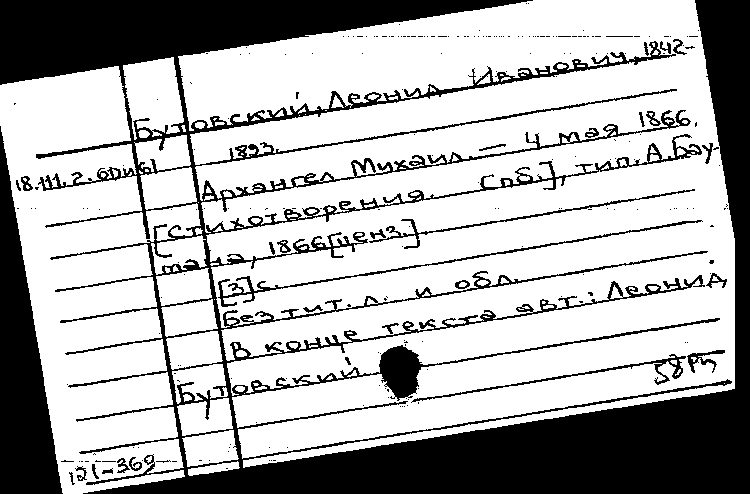 Бутовский, Леонид Иванович, 1842-
1893.
18.111.2.
Архангел Михаил. — 4 мая 1866.
[Стихотворения. Спб.], тип. А. Бау-
мана, 1866 [ценз.].
[3] с.
Без тит. л. и обл.
В конце текста авт.: Леонид
Бутовский
58
121-369